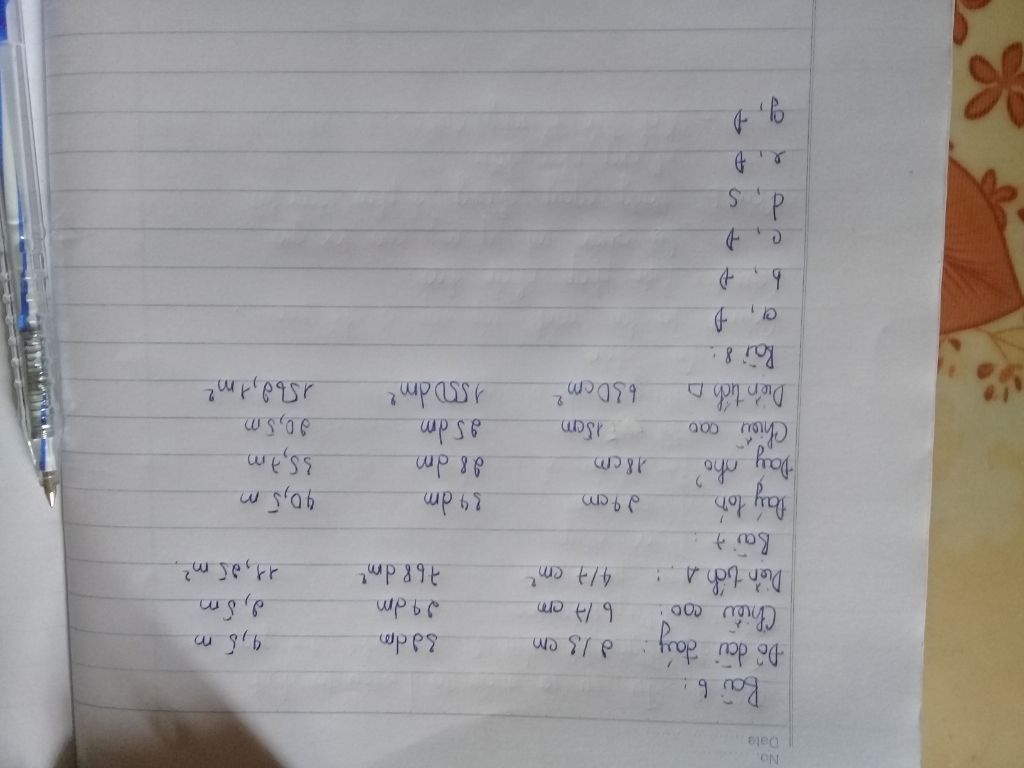 No.
Date
Bài 6:
Độ dài đáy: 2/3 cm 32dm 4,5 m
Chiều cao: 6/7 cm 24dm 2,5m
Diện tích Δ: 4/7 cm² 768dm² 11,25 m².
Bài 7:
Đáy lớn 24cm 34dm 40,5 m
Đáy nhỏ 18cm 28 dm 35,7m
Chiều cao 15cm 25dm 20,5m
Diện tích Δ 630cm² 1550dm² 1562,1m²
Bài 8:
a, Đ
b, Đ
c, Đ
d, S
e, Đ
g, Đ